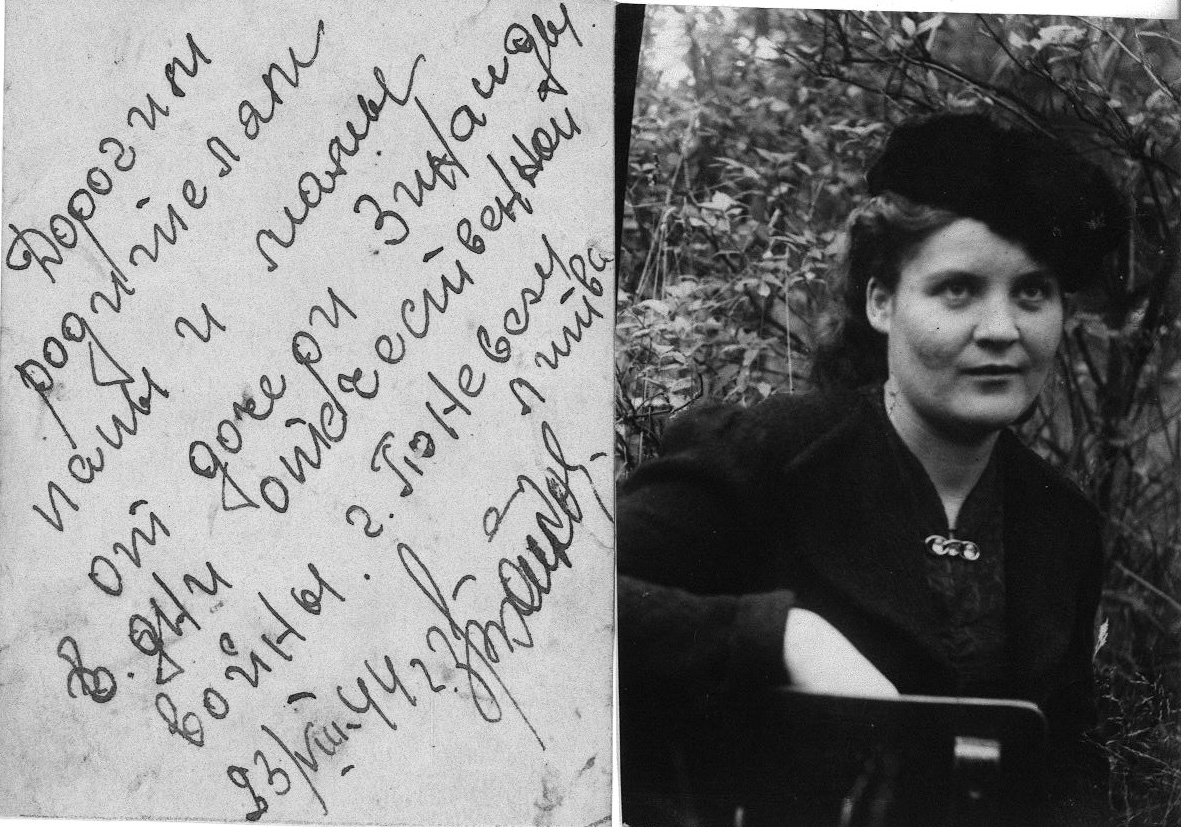 Дорогим
родителям
папы и мамы
от дочери Зинаиды.
В. дни отечественной
войны. г.
литва
23/VIII-44 г.